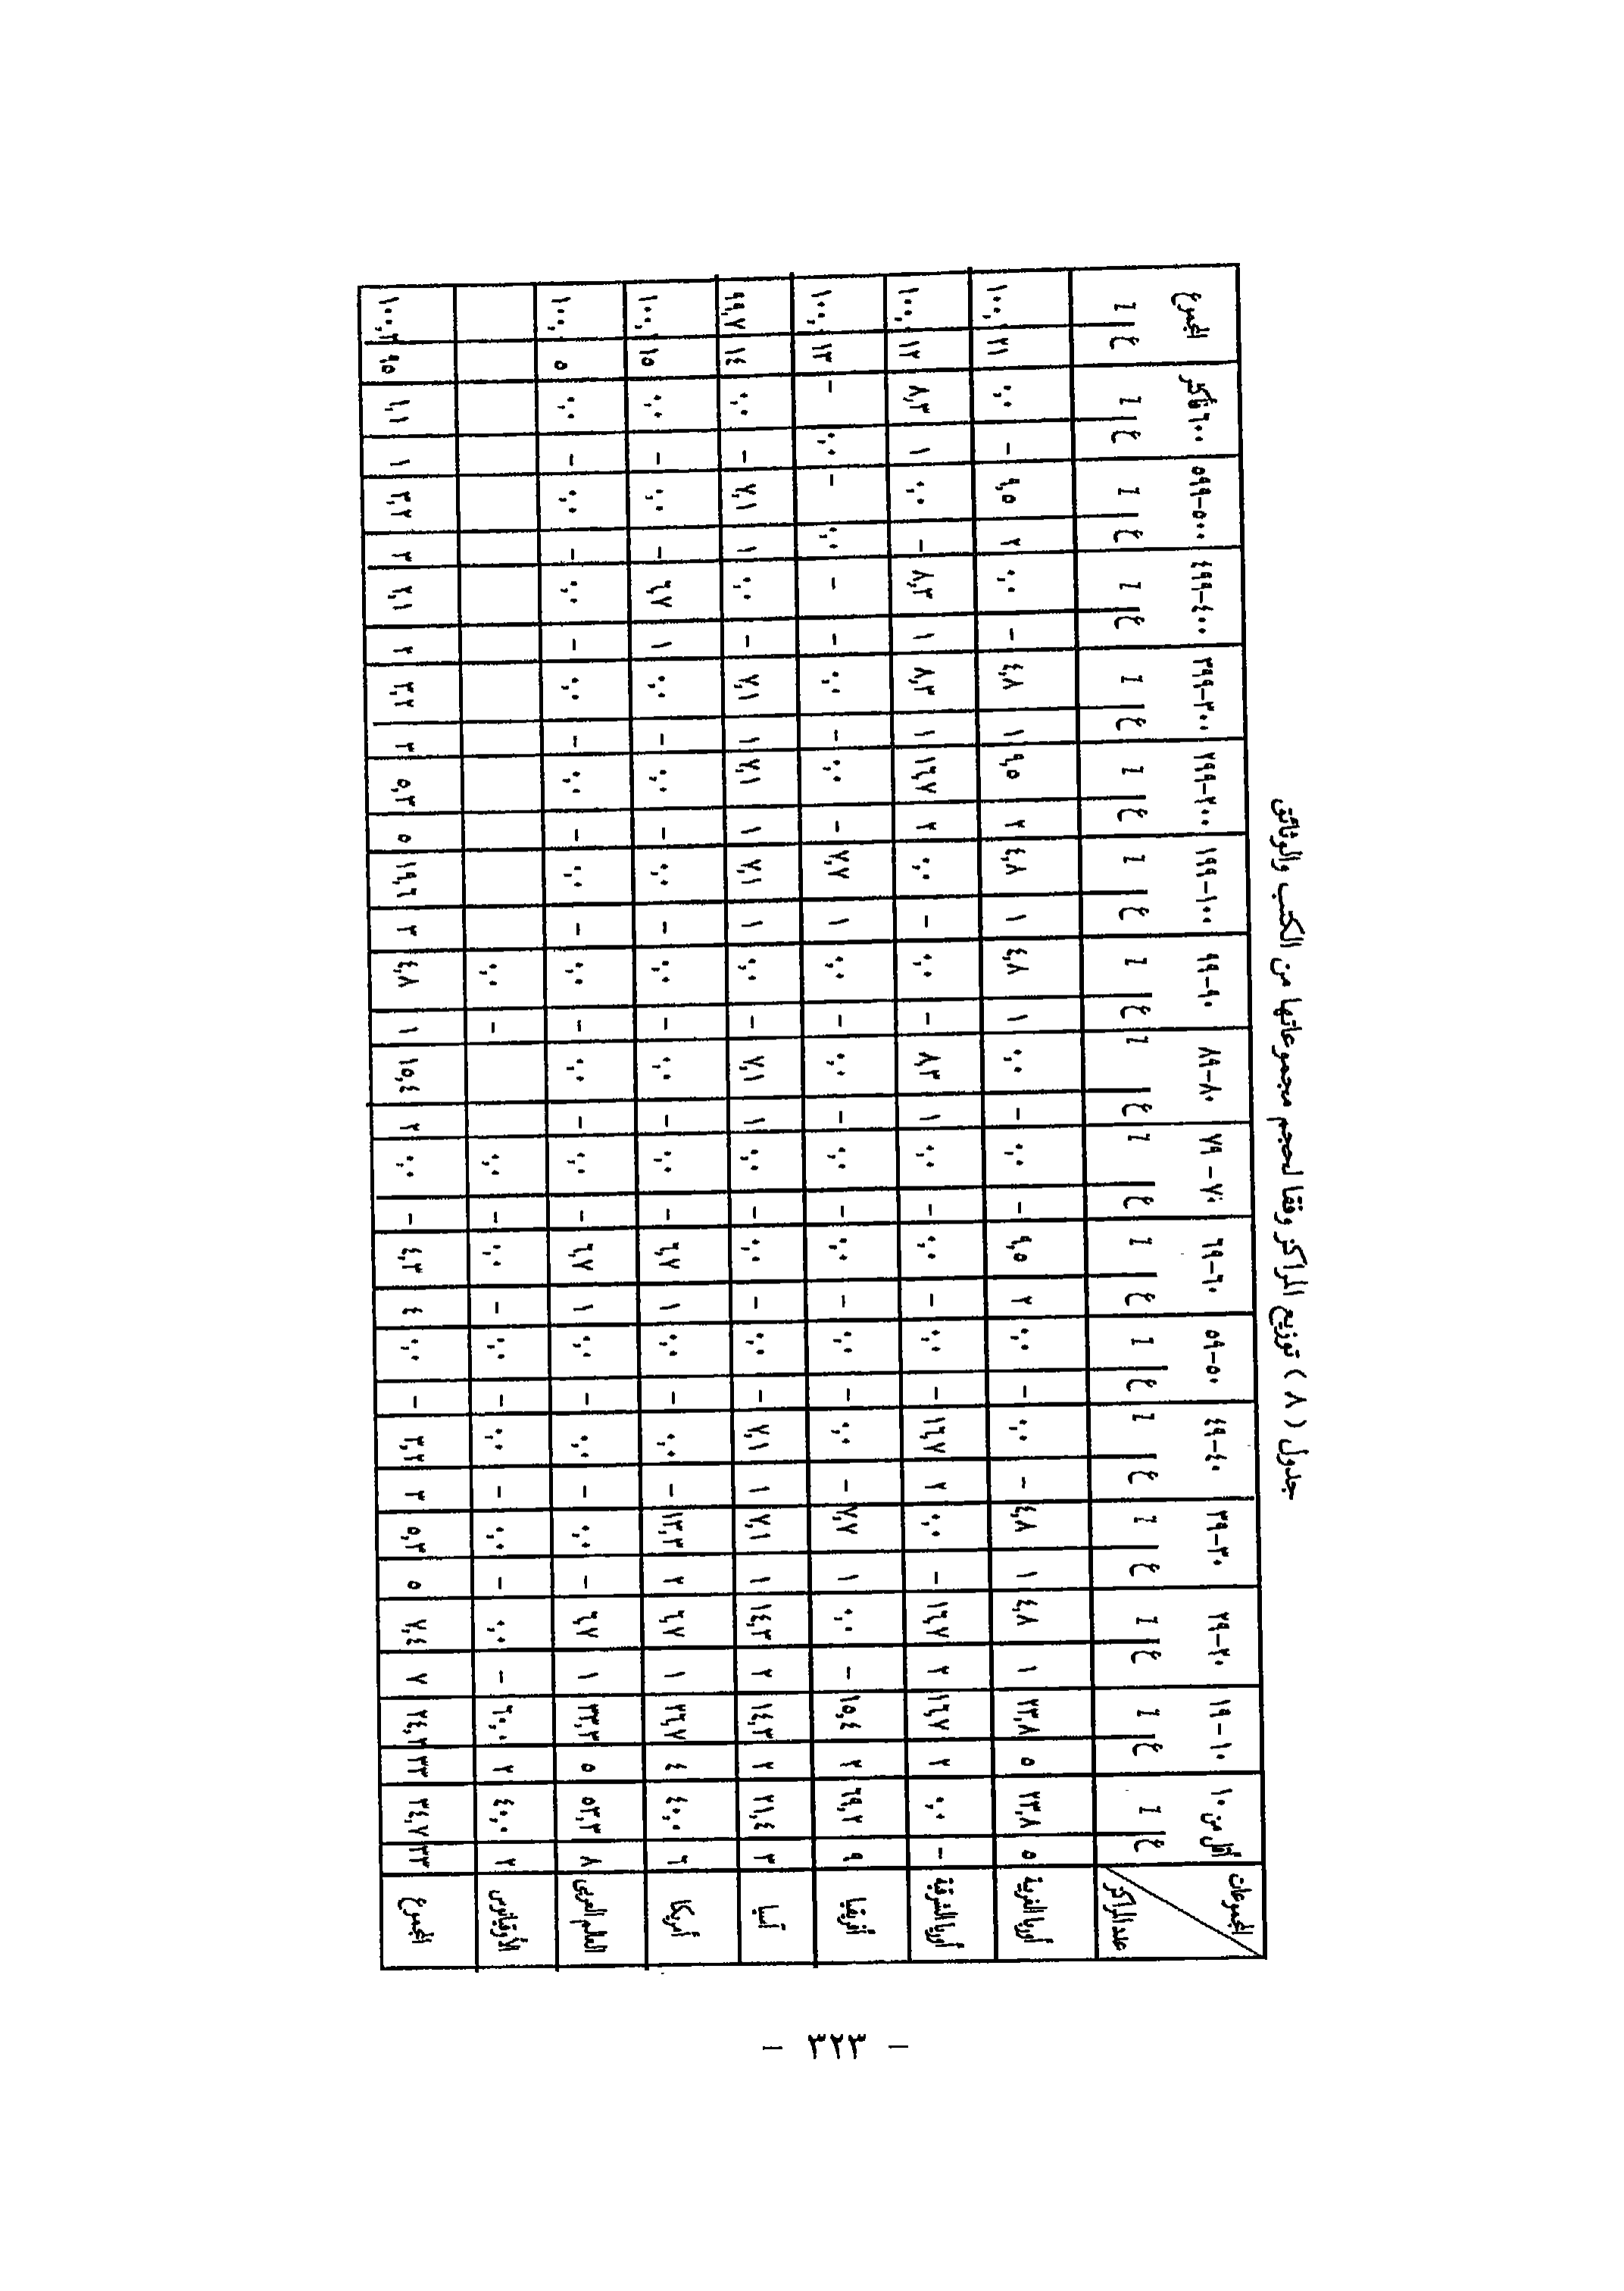 جدول ( ٨ ) توزيع المراكز وفقا لحجم مجموعاتها من الكتب والوثائق
المجموعات أقل من ١٠ ١٠-١٩ ٢٠-٢٩ ٣٠-٣٩ ٤٠-٤٩ ٥٠-٥٩ ٦٠-٦٩ ٧٠-٧٩ ٨٠-٨٩ ٩٠-٩٩ ١٠٠-١٩٩ ٢٠٠-٢٩٩ ٣٠٠-٣٩٩ ٤٠٠-٤٩٩ ٥٠٠-٥٩٩ ٦٠٠ فأكثر المجموع
عدد المراكز ع ٪ ع ٪ ع ٪ ع ٪ ع ٪ ع ٪ ع ٪ ع ٪ ع ٪ ع ٪ ع ٪ ع ٪ ع ٪ ع ٪ ع ٪ ع ٪ ع ٪
أوربا الغربية ٥ ٢٣,٨ ٥ ٢٣,٨ ١ ٤,٨ ١ ٤,٨ - ٠,٠ - ٠,٠ ٢ ٩,٥ - ٠,٠ - ٠,٠ ١ ٤,٨ ١ ٤,٨ ٢ ٩,٥ ١ ٤,٨ - ٠,٠ ٢ ٩,٥ - ٠,٠ ٢١ ١٠٠,٠
أوربا الشرقية - ٠,٠ ٢ ١٦,٧ ٢ ١٦,٧ - ٠,٠ ٢ ١٦,٧ - ٠,٠ - ٠,٠ - ٠,٠ ١ ٨,٣ - ٠,٠ - ٠,٠ ٢ ١٦,٧ ١ ٨,٣ ١ ٨,٣ - ٠,٠ ١ ٨,٣ ١٢ ١٠٠,٠
أفريقيا ٩ ٦٩,٢ ٢ ١٥,٤ - ٠,٠ ١ ٧,٧ - ٠,٠ - ٠,٠ - ٠,٠ - ٠,٠ - ٠,٠ - ٠,٠ ١ ٧,٧ - ٠,٠ - ٠,٠ - - ٠,٠ - ٠,٠ - ١٣ ١٠٠,٠
آسيا ٣ ٢١,٤ ٢ ١٤,٣ ٢ ١٤,٣ ١ ٧,١ ١ ٧,١ - ٠,٠ - ٠,٠ - ٠,٠ ١ ٧,١ - ٠,٠ ١ ٧,١ ١ ٧,١ ١ ٧,١ - ٠,٠ ١ ٧,١ - ٠,٠ ١٤ ٩٩,٧
أمريكا ٦ ٤٠,٠ ٤ ٢٦,٧ ١ ٦,٧ ٢ ١٣,٣ - ٠,٠ - ٠,٠ ١ ٦,٧ - ٠,٠ - ٠,٠ - ٠,٠ - ٠,٠ - ٠,٠ - ٠,٠ ١ ٦,٧ - ٠,٠ - ٠,٠ ١٥ ١٠٠,٠
العالم العربى ٨ ٥٣,٣ ٥ ٣٣,٣ ١ ٦,٧ - ٠,٠ - ٠,٠ - ٠,٠ ١ ٦,٧ - ٠,٠ - ٠,٠ - ٠,٠ - ٠,٠ - ٠,٠ - ٠,٠ - ٠,٠ - ٠,٠ - ٠,٠ ٥ ١٠٠,٠
الأوقيانوس ٢ ٤٠,٠ ٢ ٦٠,٠ - ٠,٠ - ٠,٠ - ٠,٠ - ٠,٠ - ٠,٠ - ٠,٠ - ٠,٠
المجموع ٣٣ ٣٤,٧ ٢٣ ٢٤,٢ ٧ ٧,٤ ٥ ٥,٣ ٣ ٣,٢ - ٠,٠ ٤ ٤,٢ - ٠,٠ ٢ ١٥,٤ ١ ٤,٨ ٣ ١٩,٦ ٥ ٥,٣ ٣ ٣,٢ ٢ ٢,١ ٣ ٣,٢ ١ ١,١ ٩٥ ١٠٠,٢
- ٣٢٣ -